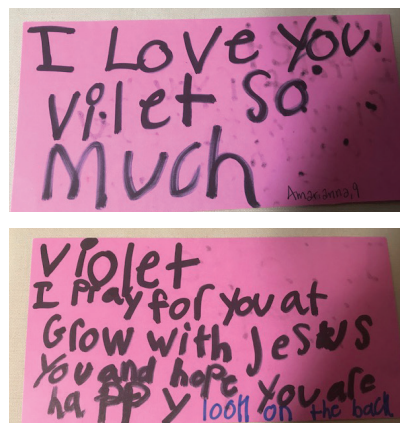 I Love You.
Vilet So
Much
Amarianna,9
Violet
I Pray for you at
Grow with Jesus
You and hope you are
happy look on the back